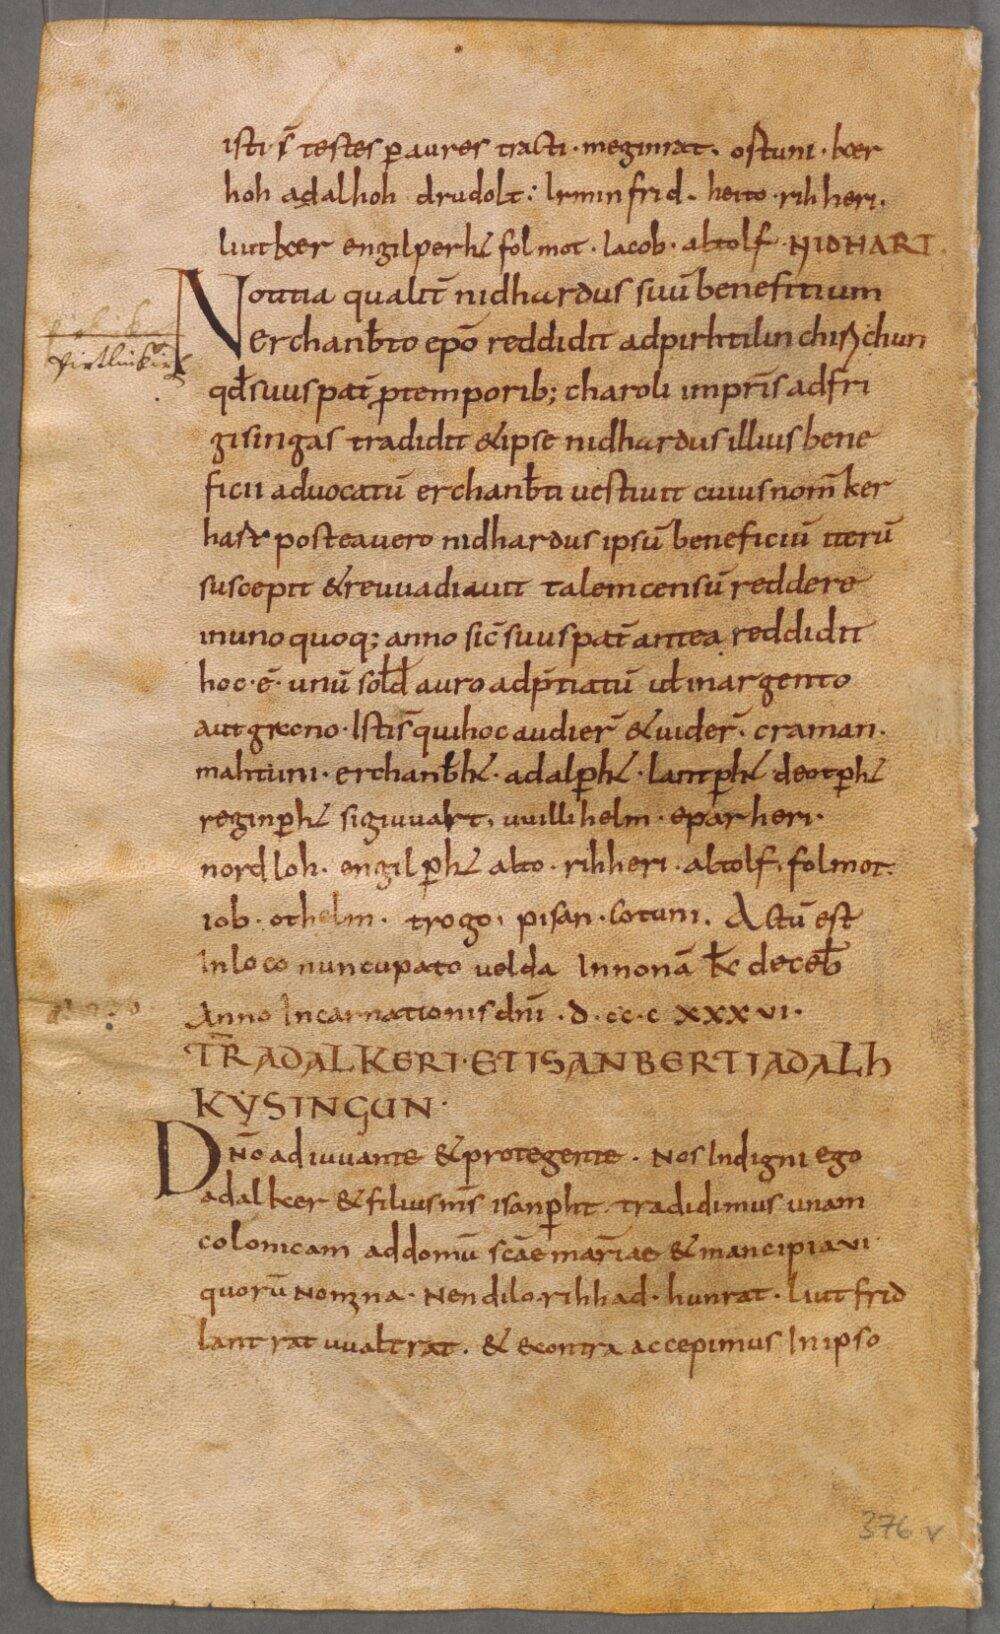 isti s̄ testes p̱ aures tracti · meginrat · ostuni · kær
hoh adalhoh drudolt : Irminfrid · heito · rihheri ·
liutkær engilperht folmot · Iacob · altolf · NIDHART
Notitia qualit̄ nidhardus suū benefitium
erchanb̄to ep̄o reddidit ad pirhtilin chirihchun
qd̄ suus pat̄ p̱ temporib; charoli imp̄ris ad fri
gisingas tradidit & ipse nidhardus illius bene
ficii advocatū erchanb̄ti vestivit cuius nom̄ ker
hart postea vero nidhardus ipsū beneficiū iterū
suscepit & reuuadiauit talem censū reddere
in uno quoq; anno sic̄ suus pat̄ antea reddidit
hoc · ē · unū sold̄ auro adp̄tiatū ul̄ in argento
aut grano · Isti s̄ qui hoc audier̄ & uider̄ · craman ·
mahtuni · erchanb̄ht · adalp̱ht · lantp̱ht deotp̱ht
reginp̱ht sigiuuart · uuillihelm · eparheri ·
nordloh · engilp̱ht alto · rihheri · altolf · folmot ·
iob · othelm · trogo · pisan · Cotuni · Actū est
In loco nuncupato uelda In nonā kł deceb̄
Anno Incarnationis dn̄i · d · cc · c xxxvi ·
TR̄ ADALKERI · ET ISANBERTI AD ALH
KYSINGUN ·
Dn̄o adiuuante & protegente · Nos Indigni ego
adalkær & filius m̄s isanp̱ht tradidimus unam
colonicam ad domū sc̄ae mariae & mancipia vi
quorū Nomina · Nendilo · rihhad · hunrat · liutfrid
lantrat uualtrat · & econtra accepimus In ipso
376 v